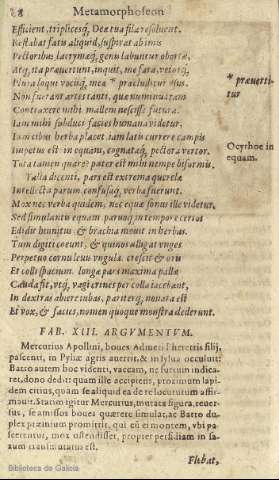 78 Metamorphoseon
Efficient, triplicesq́; Deæ tua fila resoluent.
Restabat fatis aliquid, suspirat ab imis
Pectoribus lacrymæq́; genis labuntur obortæ,
Atq; ita præuertunt, inquit, me fata, vetorq́;
Plura loqui vocisq́; meæ * præcluditur vsus.
Non fuerant artes tanti, quæ numinis iram
Contraxere mihi. mallem nescisse futura.
Iam mihi subduci facies humana videtur.
Iam cibus herba placet. iam latis currere campis
Impetus est in equam, cognataq́; pectora vertor.
Tota tamen quare? pater est mihi nempe biformis.
Talia dicenti, pars est extrema querelæ
Intellecta parum. confusaq́; verba fuerunt.
Mox nec verba quidem, nec equæ sonus ille videtur,
Sed simulantis equam. paruoq́; in tempore certos
Edidit hinnitus, & brachia mouit in herbas.
Tum digiti coeunt, & quinos alligat vngues
Perpetuo cornu leuis vngula. crescit & oris
Et colli spacium. longæ pars maxima pallæ
Cauda fit, vtq́; vagi crines per colla iacebant,
In dextras abiere iubas, pariterq́; nouata est
Et vox, & facies, nomen quoque monstra dederunt.
* præuerti-
tur
Ocyrhoe in
equam.
FAB. XIII. ARGVMENTVM.
Mercurius Apollini, boues Admeti Pheretis filij,
pascenti, in Pyliæ agris auertit, & in sylua occuluit:
Batto autem hoc videnti, vaccam, ne furtum indica-
ret, dono dedit: quam ille accipiens, proximum lapi-
dem citius, quam se aliquid ea de re locuturum affir-
mauit. Statim igitur Mercurius, mutata figura, reuer-
sus, se amissos boues quærere simulat, ac Batto du-
plex præmium promittit, qui cùm eo montem, vbi pa-
scerentur, mox ostendisset, propter perfidiam in sa-
xum transmutatus est.
Flebat,
Biblioteca de Galicia